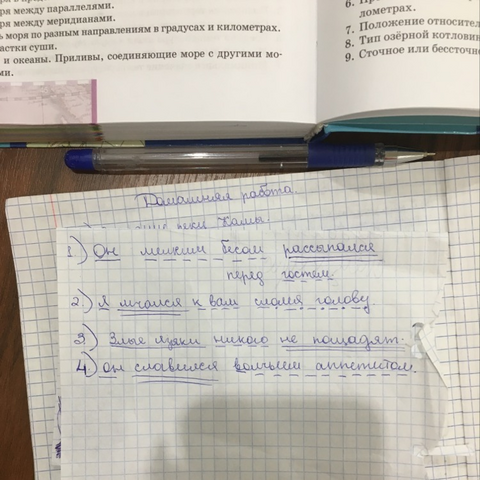 ря между параллелями.
ря между меридианами.
ь моря по разным направлениям в градусах и километрах.
астки суши.
и океаны. Приливы, соединяющие море с другими мо-
ми.
6.
лометрах.
7. Положение относител
8. Тип озёрной котловин
9. Сточное или бессточн
Домашняя работа.
реки Камы.
1) Он мелким бесом рассыпался
перед гостем.
2) Я мчался к вам сломя голову
3) Злые языки никого не пощадят.
4) Он славился волчьим аппетитом.